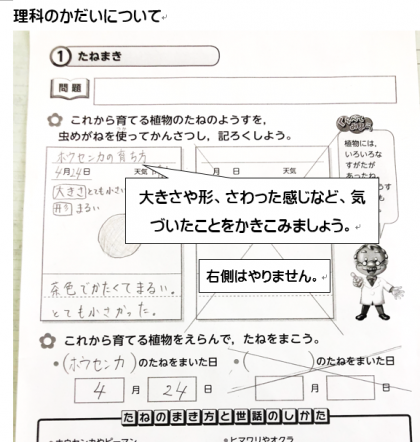 理科のかだいについて
① たねまき
問題
これから育てる植物のたねのようすを，
虫めがねを使ってかんさつし，記ろくしよう。
植物には，
いろいろな
すがたが
あったね
ホウセンカの育ち方
4月24日 天気
月 日 天気
大きさ とても小さい
形 まるい
大きさや形、さわった感じなど、気
づいたことをかきこみましょう。
右側はやりません。
茶色でかたくてまるい。
とても小さかった。
これから育てる植物をえらんで，たねをまこう。
●(ホウセンカ)のたねをまいた日
●( )のたねをまいた日
4 月 24 日
月 日
たねのまき方と世話のしかた
●ホウセンカやピーマン
●ヒマワリやオクラ